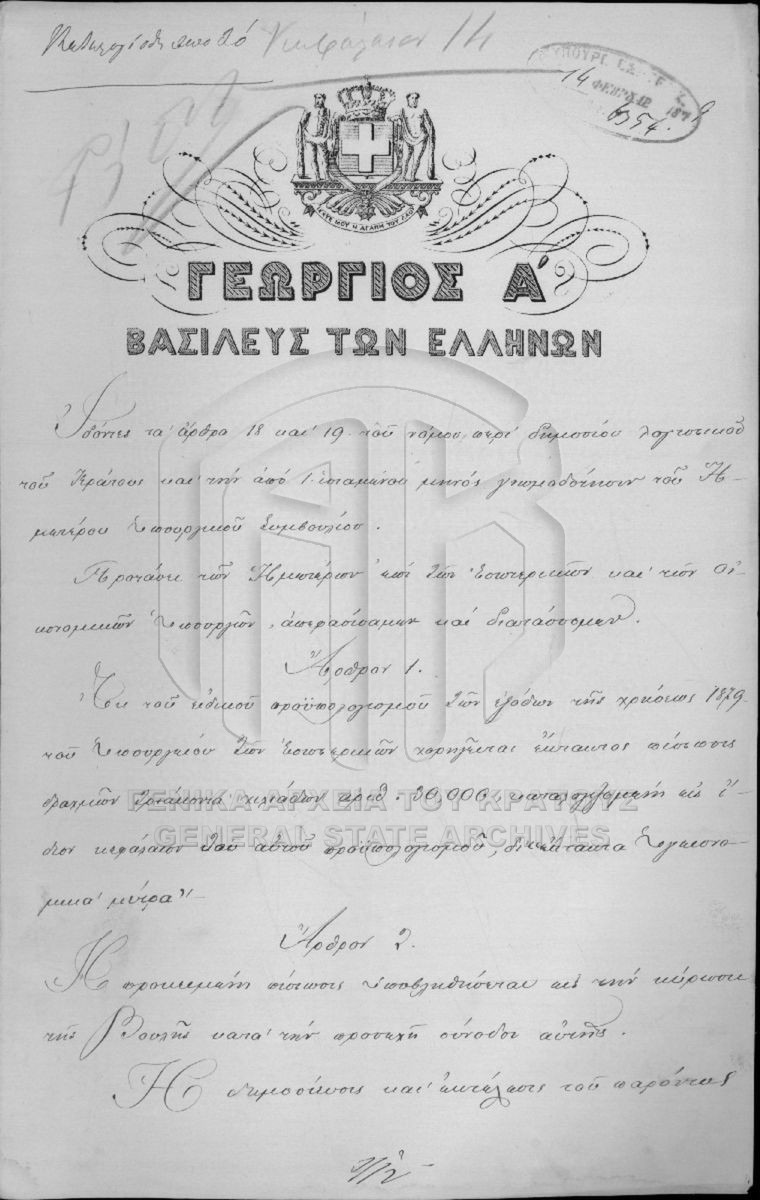 Κεφάλαιον 14
ΥΠΟΥΡΓ.
14
ΦΕΒΡ 187 9
6354
ΙΣΧΥΣ ΜΟΥ Η ΑΓΑΠΗ ΤΟΥ ΛΑΟΥ
ΓΕΩΡΓΙΟΣ Α΄
ΒΑΣΙΛΕΥΣ ΤΩΝ ΕΛΛΗΝΩΝ
Ἰδόντες τὰ ἄρθρα 18 καὶ 19 τοῦ νόμου περὶ δημοσίου λογιστικοῦ
τοῦ Κράτους καὶ τὴν ἀπὸ 1 ἱσταμένου μηνὸς γνωμοδότησιν τοῦ Ἡ-
μετέρου Ὑπουργικοῦ Συμβουλίου.
Προτάσει τῶν Ἡμετέρων ἐπὶ τῶν Ἐσωτερικῶν καὶ τῶν Οἰ-
κονομικῶν Ὑπουργῶν, ἀπεφασίσαμεν καὶ διατάσσομεν.
Ἄρθρον 1.
Ἐκ τοῦ εἰδικοῦ προϋπολογισμοῦ τῶν ἐξόδων τῆς χρήσεως 1879
τοῦ Ὑπουργείου τῶν Ἐσωτερικῶν χορηγεῖται ἔκτακτος πίστωσις
δραχμῶν τριάκοντα χιλιάδων ἀριθ. 30,000, καταλογιζομένη εἰς ἴ-
διον κεφάλαιον τοῦ αὐτοῦ προϋπολογισμοῦ, δι' ἔκτακτα ὑγειονο-
μικὰ μέτρα"
Ἄρθρον 2.
Ἡ προκειμένη πίστωσις ὑποβληθήσεται εἰς τὴν κύρωσιν
τῆς Βουλῆς κατὰ τὴν προσεχῆ σύνοδον αὐτῆς.
Ἡ δημοσίευσις καὶ ἐκτέλεσις τοῦ παρόντος
ΓΕΝΙΚΑ ΑΡΧΕΙΑ ΤΟΥ ΚΡΑΤΟΥΣ
GENERAL STATE ARCHIVES